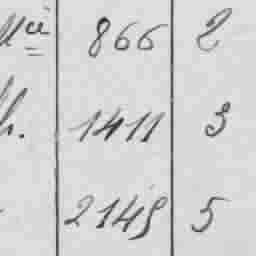 Mce 866 2
h. 1411 3
2145 5